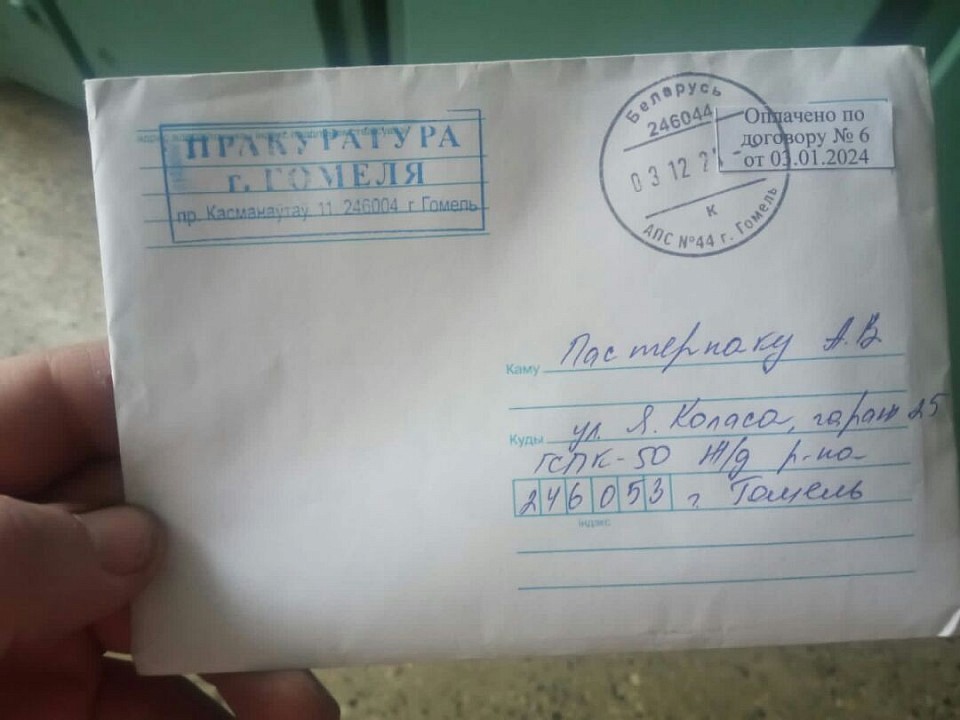 ПРАКУРАТУРА
г. ГОМЕЛЯ
пр. Касманаўтаў 11 246004 г Гомель
Беларусь
246044
03 12 2
к
АПС №44 г. Гомель
Оплачено по
договору № 6
от 03.01.2024
Каму Пастернаку А.В
Куды ул. Я. Коласа, гараж 25
ГСПК-50 Ж/д р-на
246053 г. Гомель
індэкс